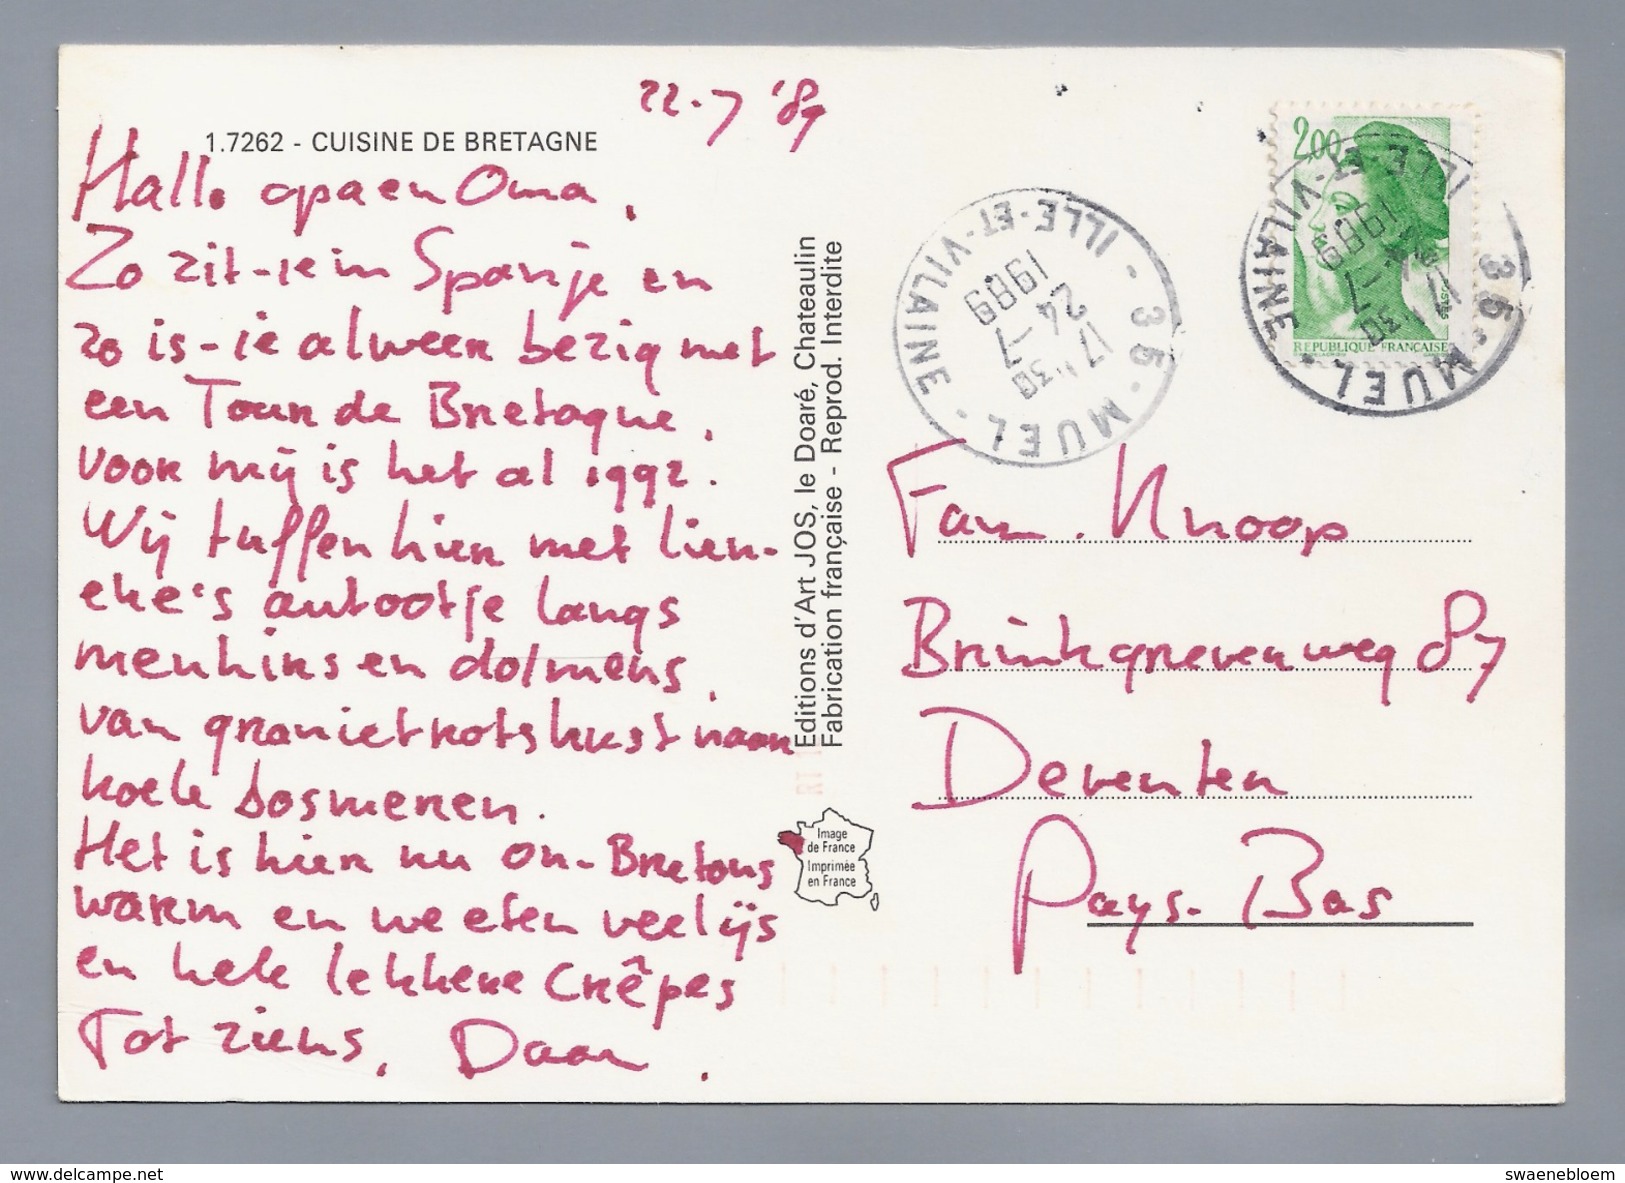 22-7 '89
1.7262 - CUISINE DE BRETAGNE
Hallo opa en Oma,
Zo zit-ie in Spanje en
zo is-ie alweer bezig met
een Tour de Bretagne,
voor mij is het al 1992.
Wij tuffen hier met Lien-
eke's autootje langs
menhirs en dolmens,
van granietrotskust naar
koele bosmeren.
Het is hier nu on-Bretons
warm en we eten veel ijs
en hele lekkere crêpes
Tot ziens, Daan.
Editions d'Art JOS, le Doaré, Chateaulin
Fabrication française - Reprod. Interdite
Image
de France
Imprimée
en France
35 - MUEL - ILLE-ET-VILAINE
17 H 30
24 -7
1989
2,00
POSTES
REPUBLIQUE FRANÇAISE
35 - MUEL - ILLE-ET-VILAINE
17 H 30
24 -7
1989
Fam. Knoop
Brinkgreverweg 87
Deventer
Pays-Bas
delcampe.net
swaenebloem